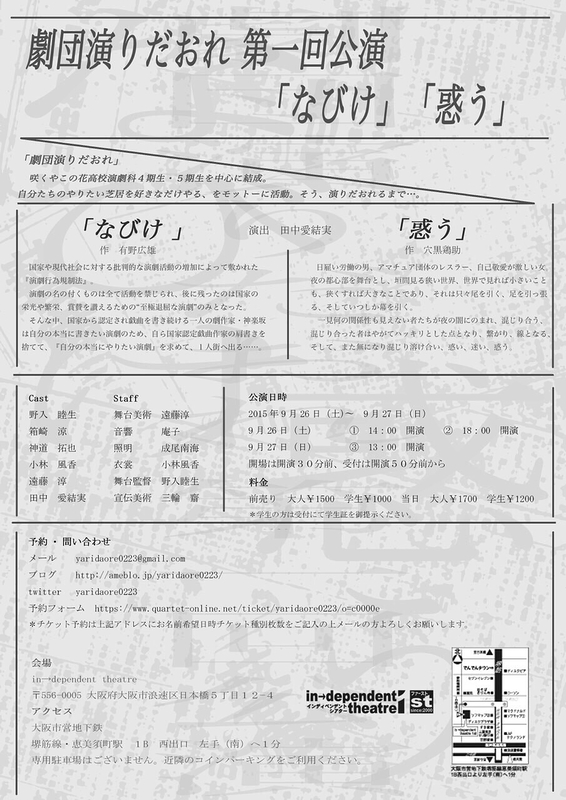 劇団演りだおれ 第一回公演
「なびけ」「惑う」
「劇団演りだおれ」
咲くやこの花高校演劇科４期生・５期生を中心に結成。
自分たちのやりたい芝居を好きなだけやる、をモットーに活動。そう、演りだおれるまで…。
「なびけ 」
作　有野広雄
演出　田中愛結実
「惑う」
作　穴黒鶏助
国家や現代社会に対する批判的な演劇活動の増加によって敷かれた
『演劇行為規制法』。
演劇の名の付くものは全て活動を禁じられ、後に残ったのは国家の
栄光や繁栄、賞賛を讃えるための“至極退屈な演劇”のみとなった。
そんな中、国家から認定され戯曲を書き続ける一人の劇作家・神楽坂
は自分の本当に書きたい演劇のため、自ら国家認定戯曲作家の肩書きを
捨てて、『自分の本当にやりたい演劇』を求めて、１人街へ出る……。
日雇い労働の男、アマチュア団体のレスラー、自己敬愛が激しい女、
夜の都心部を舞台とし、垣間見る狭い世界、世界で見れば小さいこと
も、狭くすれば大きなことであり、それは只々尾を引く、足を引っ張
る、そしていつしか幕を引く。
一見何の関係性も見えない者たちが夜の闇にのまれ、混じり合う、
混じり合った者はやがてハッキリとした点となり、繋がり、線となる、
そして、また無になり混じり溶け合い、惑い、迷い、惑う。
Cast
野入　睦生
箱崎　涼
神道　拓也
小林　風香
遠藤　淳
田中　愛結実
Staff
舞台美術　遠藤淳
音響　庵子
照明　成尾南海
衣裳　小林風香
舞台監督　野入睦生
宣伝美術　三輪　齋
公演日時
2015年９月26日（土）～　９月27日（日）
９月26日（土）　①　14：00　開演　②　18：00　開演
９月27日（日）　③　13：00　開演
開場は開演３０分前、受付は開演５０分前から
料金
前売り　大人￥1500　学生￥1000　当日　大人￥1700　学生￥1200
＊学生の方は受付にて学生証を御提示ください。
予約・問い合わせ
メール　yaridaore0223@gmail.com
ブログ　http://ameblo.jp/yaridaore0223/
twitter　yaridaore0223
予約フォーム　https://www.quartet-online.net/ticket/yaridaore0223/o=c0000e
＊チケット予約は上記アドレスにお名前希望日時チケット種別枚数をご記入の上メールの方よろしくお願いします。
会場
in→dependent theatre
〒556-0005 大阪府大阪市浪速区日本橋５丁目１２－４
アクセス
大阪市営地下鉄
堺筋線・恵美須町駅　１B　西出口　左手（南）へ１分
専用駐車場はございません。近隣のコインパーキングをご利用ください。
in→dependent
インディペンデント
シアター
theatre
1st
ファースト
since2000
北
でんでんタウン
大阪市営地下鉄堺筋線恵美須町駅
1B西出口より左手(南)へ1分